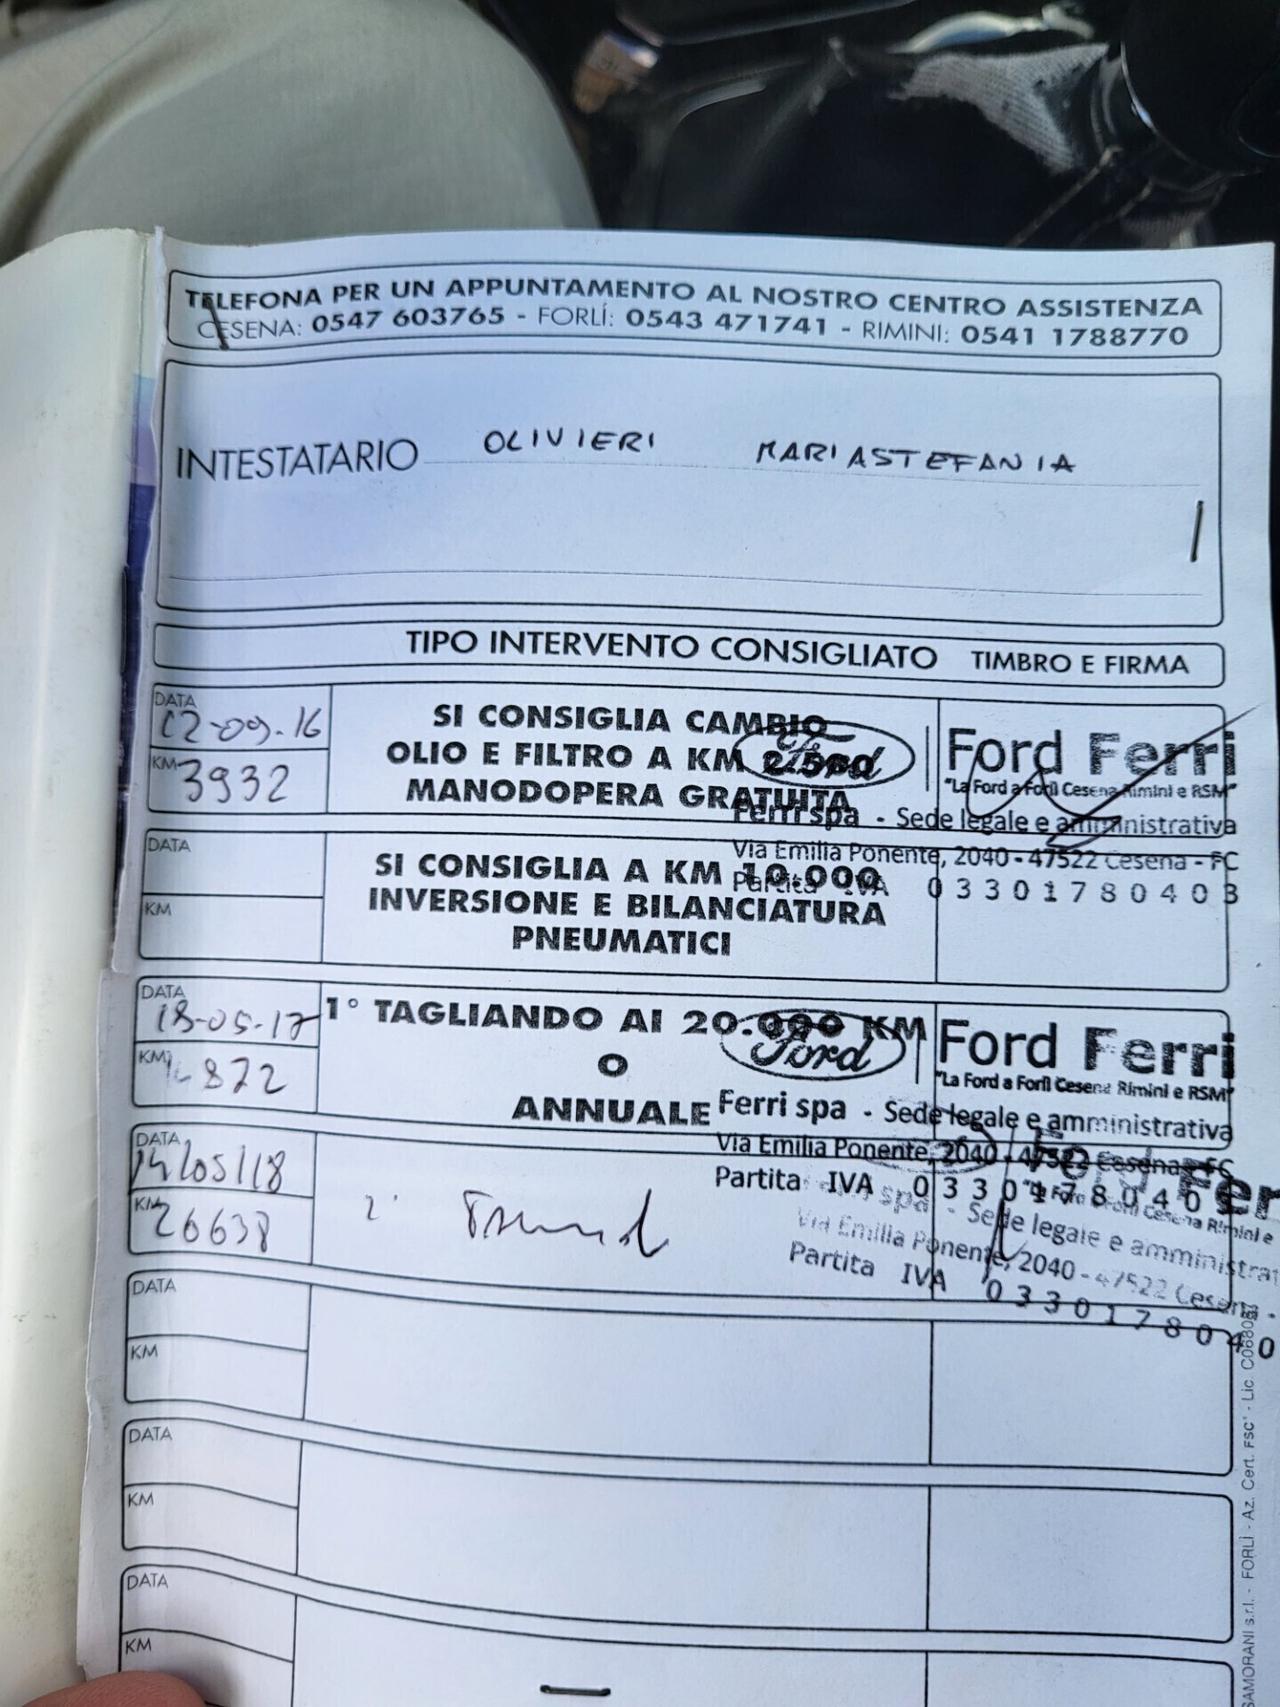 TELEFONA PER UN APPUNTAMENTO AL NOSTRO CENTRO ASSISTENZA
CESENA: 0547 603765 - FORLÌ: 0543 471741 - RIMINI: 0541 1788770
INTESTATARIO OLIVIERI MARIASTEFANIA
TIPO INTERVENTO CONSIGLIATO TIMBRO E FIRMA
DATA
12-09-16
KM
3932
SI CONSIGLIA CAMBIO
OLIO E FILTRO A KM 2.500
MANODOPERA GRATUITA
Ford
Ford Ferri
"La Ford a Forlì Cesena Rimini e RSM"
Ferri spa - Sede legale e amministrativa
Via Emilia Ponente, 2040 - 47522 Cesena - FC
Partita IVA 03301780403
DATA
KM
SI CONSIGLIA A KM 10.000
INVERSIONE E BILANCIATURA
PNEUMATICI
DATA
18-05-17
KM
872
1° TAGLIANDO AI 20.000 KM
O
ANNUALE
Ford
Ford Ferri
"La Ford a Forlì Cesena Rimini e RSM"
Ferri spa - Sede legale e amministrativa
Via Emilia Ponente, 2040 - 47522 Cesena - FC
Partita IVA 0330178040
DATA
14/05/18
KM
26638
2°
Ford Fer
"La Ford a Forlì Cesena Rimini e
spa - Sede legale e amministrat
Via Emilia Ponente, 2040 - 47522 Cesena -
Partita IVA 0330178040
DATA
KM
DATA
KM
DATA
KM
SAMORANI s.r.l. - FORLÌ - Az. Cert. FSC® - Lic.